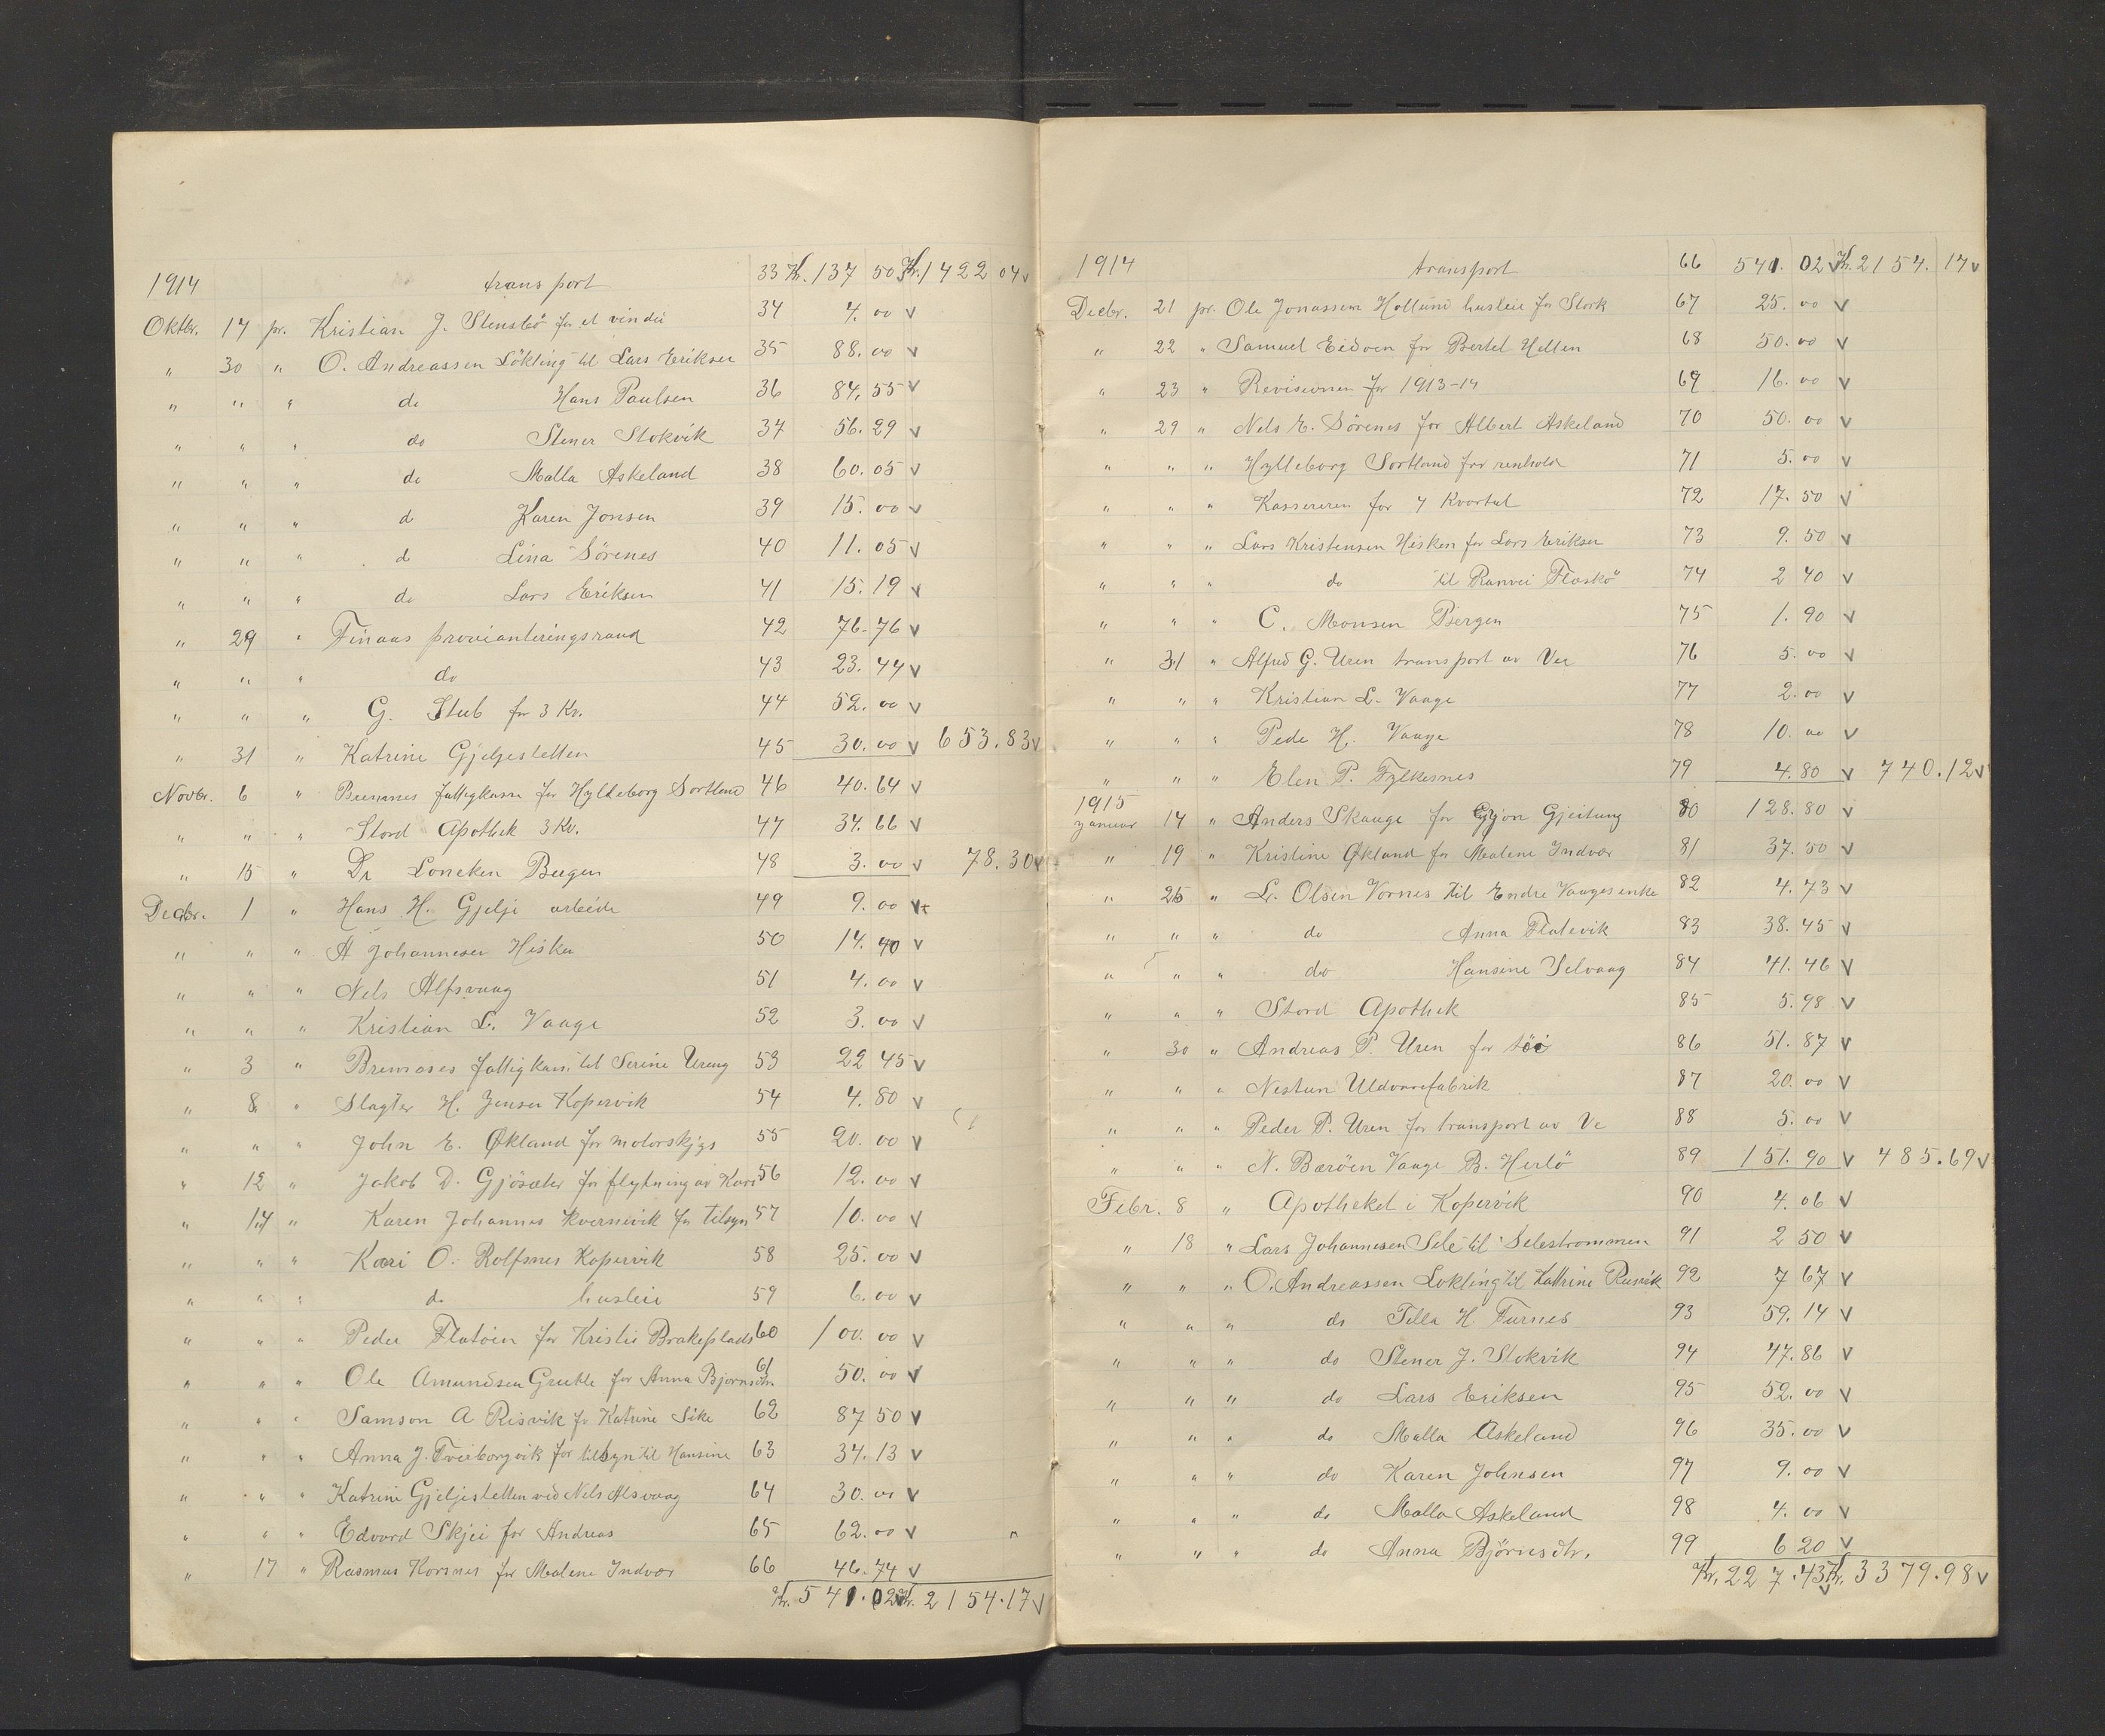 1914 transport 33 Kr. 137 50 Kr. 1422 04 v
Oktbr. 17 pr. Kristian J. Stensbö for et vindu 34 4. 00 v
" 30 " O. Andreassen Lökling til Lars Eriksen 35 88. 00 v
" " " do Hans Paulsen 36 84, 55 v
" " " do Stener Stokvik 37 56. 29 v
" " " do Malla Askeland 38 60. 05 v
" " " d Karen Jonsen 39 15. 00 v
" " " d Lina Sörenes 40 11. 05 v
" " " do Lars Eriksen 41 15. 19 v
" 29 " Finaas provianteringsraad 42 76-76 v
" " " do 43 23. 44 v
" " " G. Stub for 3 Kv. 44 52. 00 v
" 31 " Katrine Gjeljestellen 45 30. 00 v 653. 83 v
Novbr. 6 " Bremnes fattigkasse for Hylleborg Sortland 46 40. 64 v
" " " Stord Apothek 3 Kv. 47 34. 66 v
" 15 " Dr Loneken Bergen 48 3. 00 v 78. 30 v
Decbr. 1 " Hans H. Gjelje arbeide 49 9. 00 v
" " " A Johannesen Hisken 50 14. 40 v
" " " Nels Alfsvaag 51 4. 00 v
" " " Kristian L. Vaage 52 3. 00 v
" 3 " Bremnes fattigkas. til Serine Ureng 53 22 45 v
" 8 " Slagter H. Jensen Kopervik 54 4. 80 v
" " " John E. Økland for motorskjys 55 20. 00 v
" 12 " Jakob D. Gjösæter for flytning av Kari 56 12. 00 v
" 14 " Karen Johannes Kvernevik for tilsyn 57 10. 00 v
" " " Kari O. Rolfsnes Kopervik 58 25. 00 v
" " " do husleie 59 6. 00 v
" " " Peder Flatöen for Kristie Brakeplads 60 100. 00 v
" " " Ole Amundsen Grutle for Anna Bjornsdtr. 61 50. 00 v
" " " Samson A Risvik for Katrine Sike 62 87 50 v
" " " Anna J. Tveiborgvik for tilsyn til Hansine 63 34. 13 v
" " " Katrine Gjeljestellen ved Nels Alsvaag 64 30. 00 v
" " " Edvard Skjei for Andreas 65 62. 00 v
" 17 " Rasmus Horsnes for Malene Indvær 66 46. 74 v
Kr. 541. 02 v Kr. 2154. 17 v
1914 transport 66 541. 02 v Kr. 2154. 17 v
Decbr. 21 pr. Ole Jonassen Hollund husleie for Stork 67 25. 00 v
" 22 " Samuel Eidoen for Bertel Hellen 68 50. 00 v
" 23 " Revisionen for 1913-14 69 16. 00 v
" 29 " Nels E. Sörenes for Albert Askeland 70 50. 00 v
" " " Hylleborg Sortland for renhold 71 5. 00 v
" " " Kassereren for 4 Kvartal 72 17. 50 v
" " " Lars Kristensen Hisken for Lars Eriksen 73 9. 50 v
" " " do til Ranvei Flaskö 74 2 40 v
" " " C. Monsen Bergen 75 1. 90 v
" 31 " Alfred G. Uren transport av Ve 76 5. 00 v
" " " Kristian L. Vaage 77 2. 00 v
" " " Peder H. Vaage 78 10. 00 v
" " " Elen P. Fylkesnes 79 4. 80 v 740. 12 v
1915
Januar 14 " Anders Skauge for Gjon Gjeitung 80 128. 80 v
" 19 " Kristine Økland for Malene Indvær 81 37. 50 v
" 25 " L. Olsen Vornes til Endre Vaages enke 82 4. 73 v
" " " do Anna Flatevik 83 38. 45 v
" " " do Hansine Selvaag 84 41. 46 v
" " " Stord Apothek 85 5. 98 v
" 30 " Andreas P. Uren for töi 86 51. 87 v
" " " Nestun Uldvarefabrik 87 20. 00 v
" " " Peder P. Uren for transport av Ve 88 5. 00 v
" " " N. Baröen Vaage B. Herlö 89 151. 90 v 485. 69 v
Febr. 8 " Apotheket i Kopervik 90 4. 06 v
" 18 " Lars Johannesen Sele til Selestrommen 91 2 50 v
" " " O. Andreassen Lokling til Kathrine Risvik 92 7 67 v
" " " do Tilla H Turnes 93 59. 14 v
" " " do Stener J. Stokvik 94 47. 86 v
" " " do Lars Eriksen 95 52. 00 v
" " " do Malla Askeland 96 35. 00 v
" " " do Karen Johnsen 97 9. 00 v
" " " do Malla Askeland 98 4. 00 v
" " " do Anna Björnsdtr. 99 6 20 v
Kr. 227. 43 v Kr. 3379. 98 v